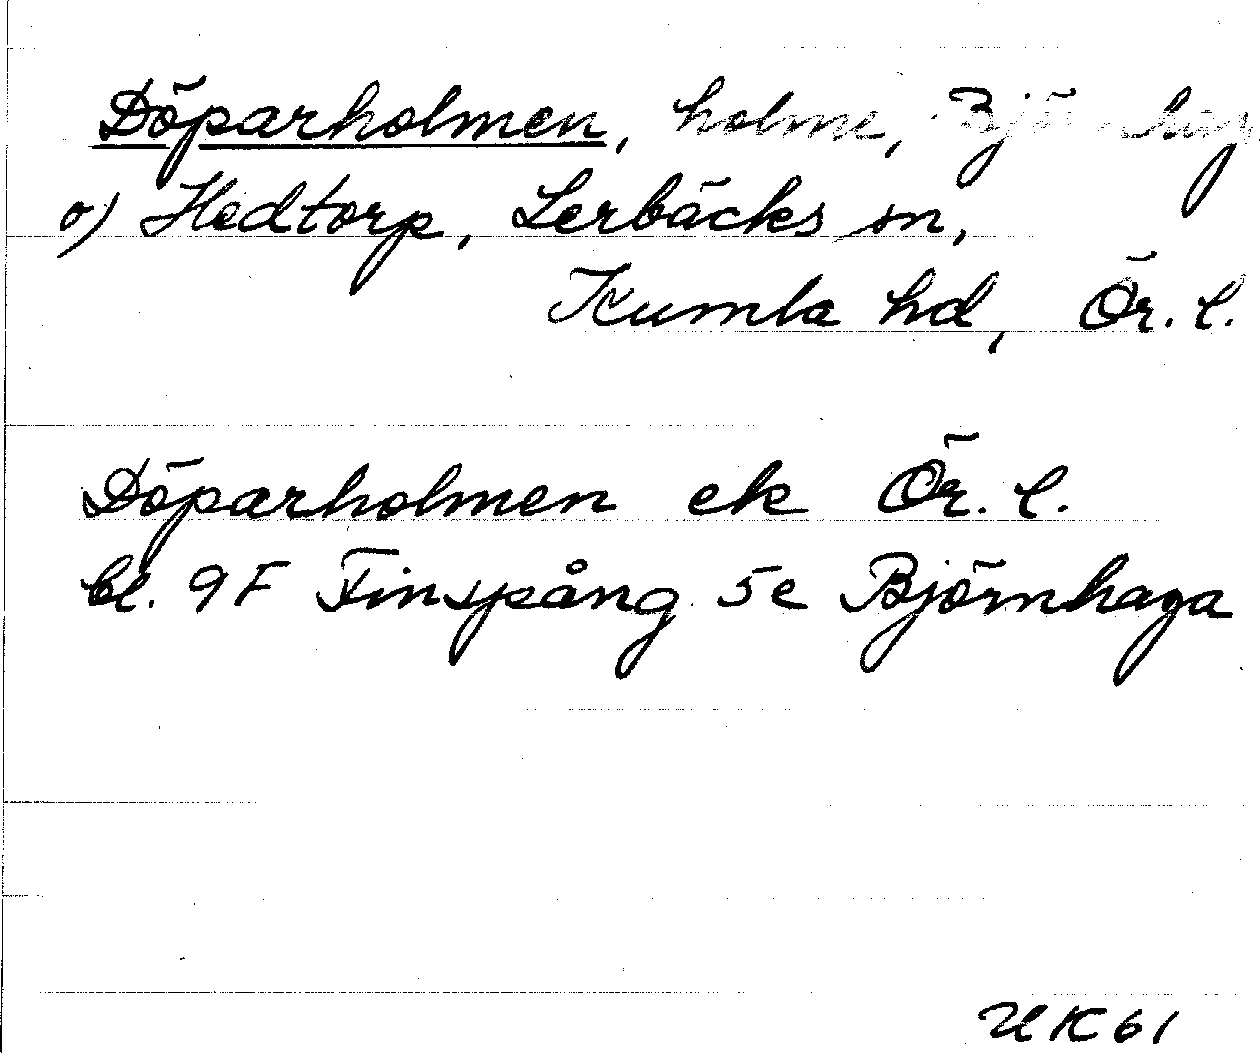 Döparholmen, holme,
o) Hedtorp, Lerbäcks sn,
Kumla hd, Ör. l.
Döparholmen ek Ör. l.
bl. 9F Finspång 5e Björnhaga
UK 61